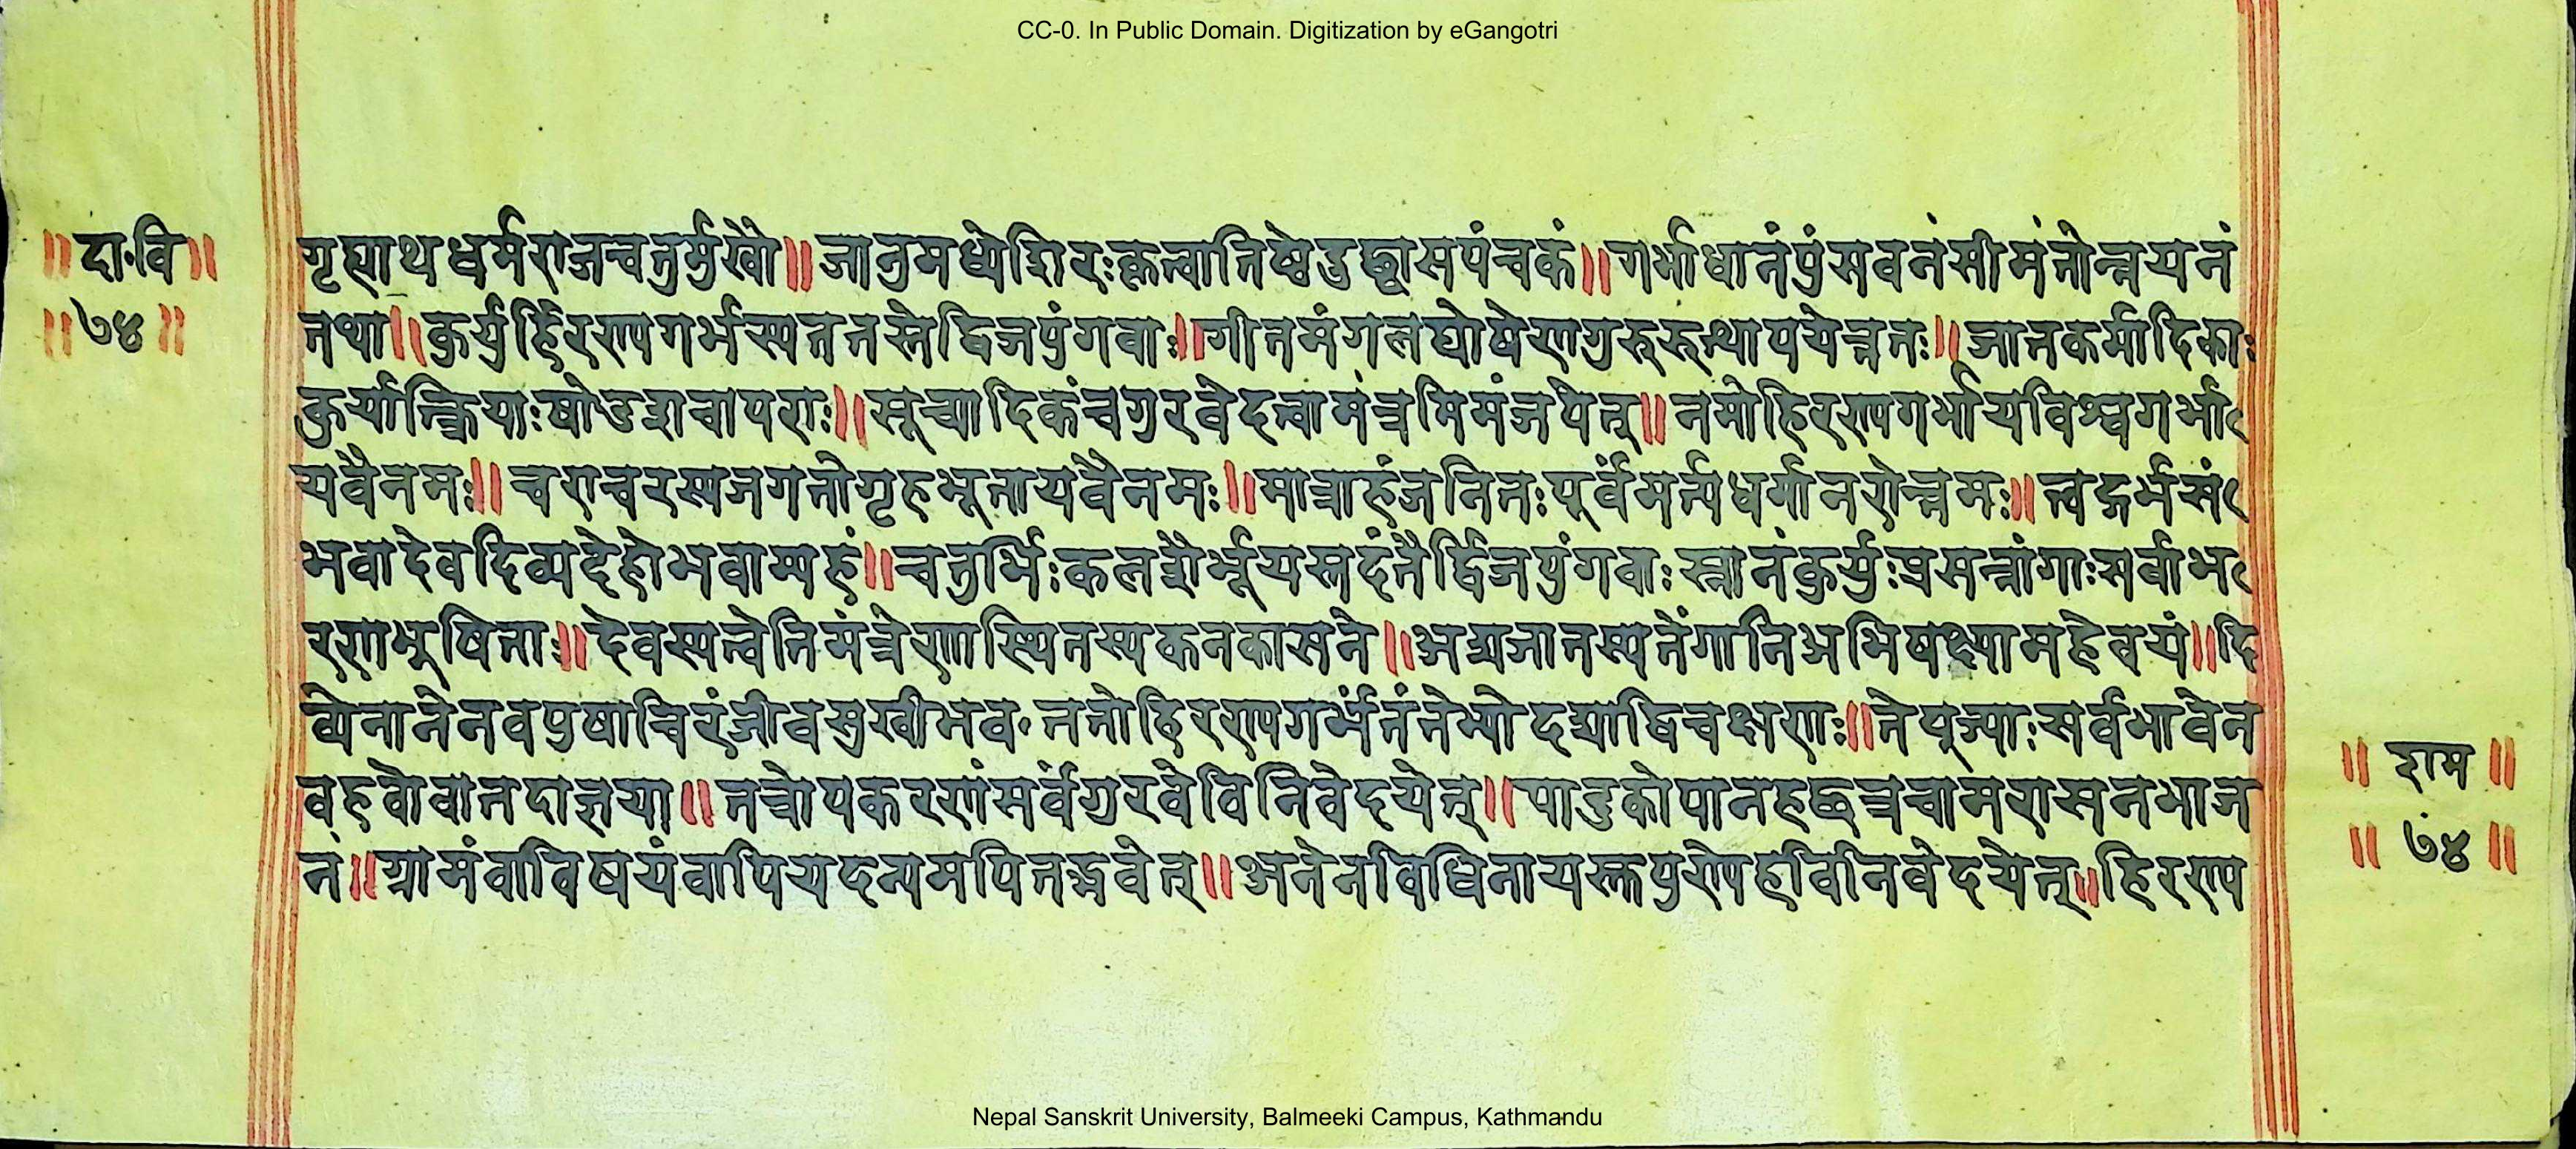 CC-0. In Public Domain. Digitization by eGangotri
॥दा॰वि॥
॥७४॥
गृह्याथधर्मराजचतुर्मुखौ॥जानुमध्येशिरःकृत्वातिष्ठेदुच्छ्वासपंचकं॥गर्भाधानंपुंसवनंसीमंतोन्नयनं
तथा॥कुर्युर्हिरण्यगर्भस्यततस्तेद्विजपुंगवाः॥गीतमंगलघोषेणगुरुरुत्थापयेत्ततः॥जातकर्मादिकाः
कुर्यात्क्रियाःषोडशचापराः॥सूच्यादिकंचगुरवेदत्वामंत्रमिमंजपेत्॥नमोहिरण्यगर्भायविश्वगर्भा
यवैनमः॥चराचरस्यजगतोगृहभूतायवैनमः॥मात्राहंजनितःपूर्वंमर्त्यधर्मानरोत्तमः॥त्वद्गर्भसं
भवादेवदिव्यदेहोभवाम्यहं॥चतुर्भिःकलशैर्भूयस्तदंतैर्द्विजपुंगवाःस्नानंकुर्युःप्रसन्नांगाःसर्वाभ
रणभूषिताः॥देवस्यत्वेतिमंत्रेणास्थितस्यकनकासने॥अद्यजातस्यतेंगानिअभिषक्ष्यामहेवयं॥दि
व्येनानेनवपुषाचिरंजीवसुखीभव॰ततोहिरण्यगर्भंतंतेभ्योदद्याद्विचक्षणः॥तेपूज्याःसर्वभावेन
वहवोवातदाज्ञया॥तत्रोपकरणंसर्वंगुरवेविनिवेदयेत्॥पादुकोपानहछत्रचामरासनभाज
नं॥ग्रामंवाविषयंवापियदन्यमपितद्भवेत्॥अनेनविधिनायस्तुपुण्येहविनिवेदयेत्॥हिरण्य
॥राम॥
॥७४॥
Nepal Sanskrit University, Balmeeki Campus, Kathmandu